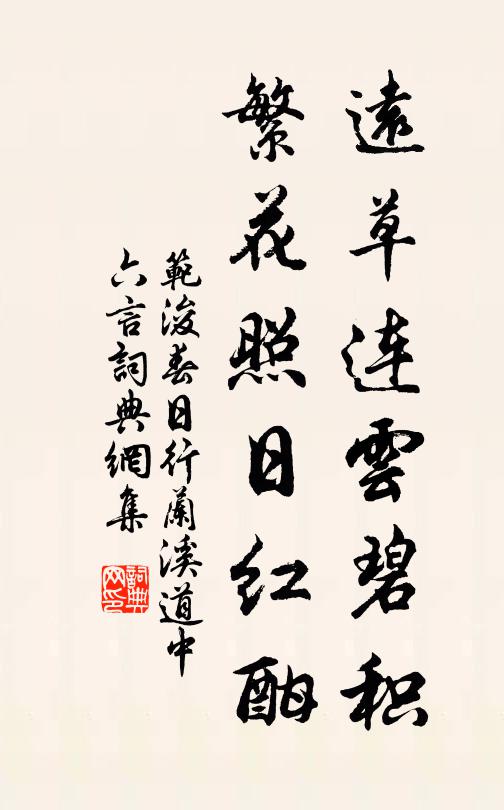 遠草连雲碧积
繁花照日红酣
範浚春日行蘭溪道中
六言詞典網集
詞典
网印